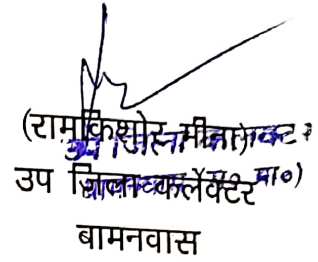 (रामकिशोर मीना)
उप जिला कलैक्टर
बामनवास